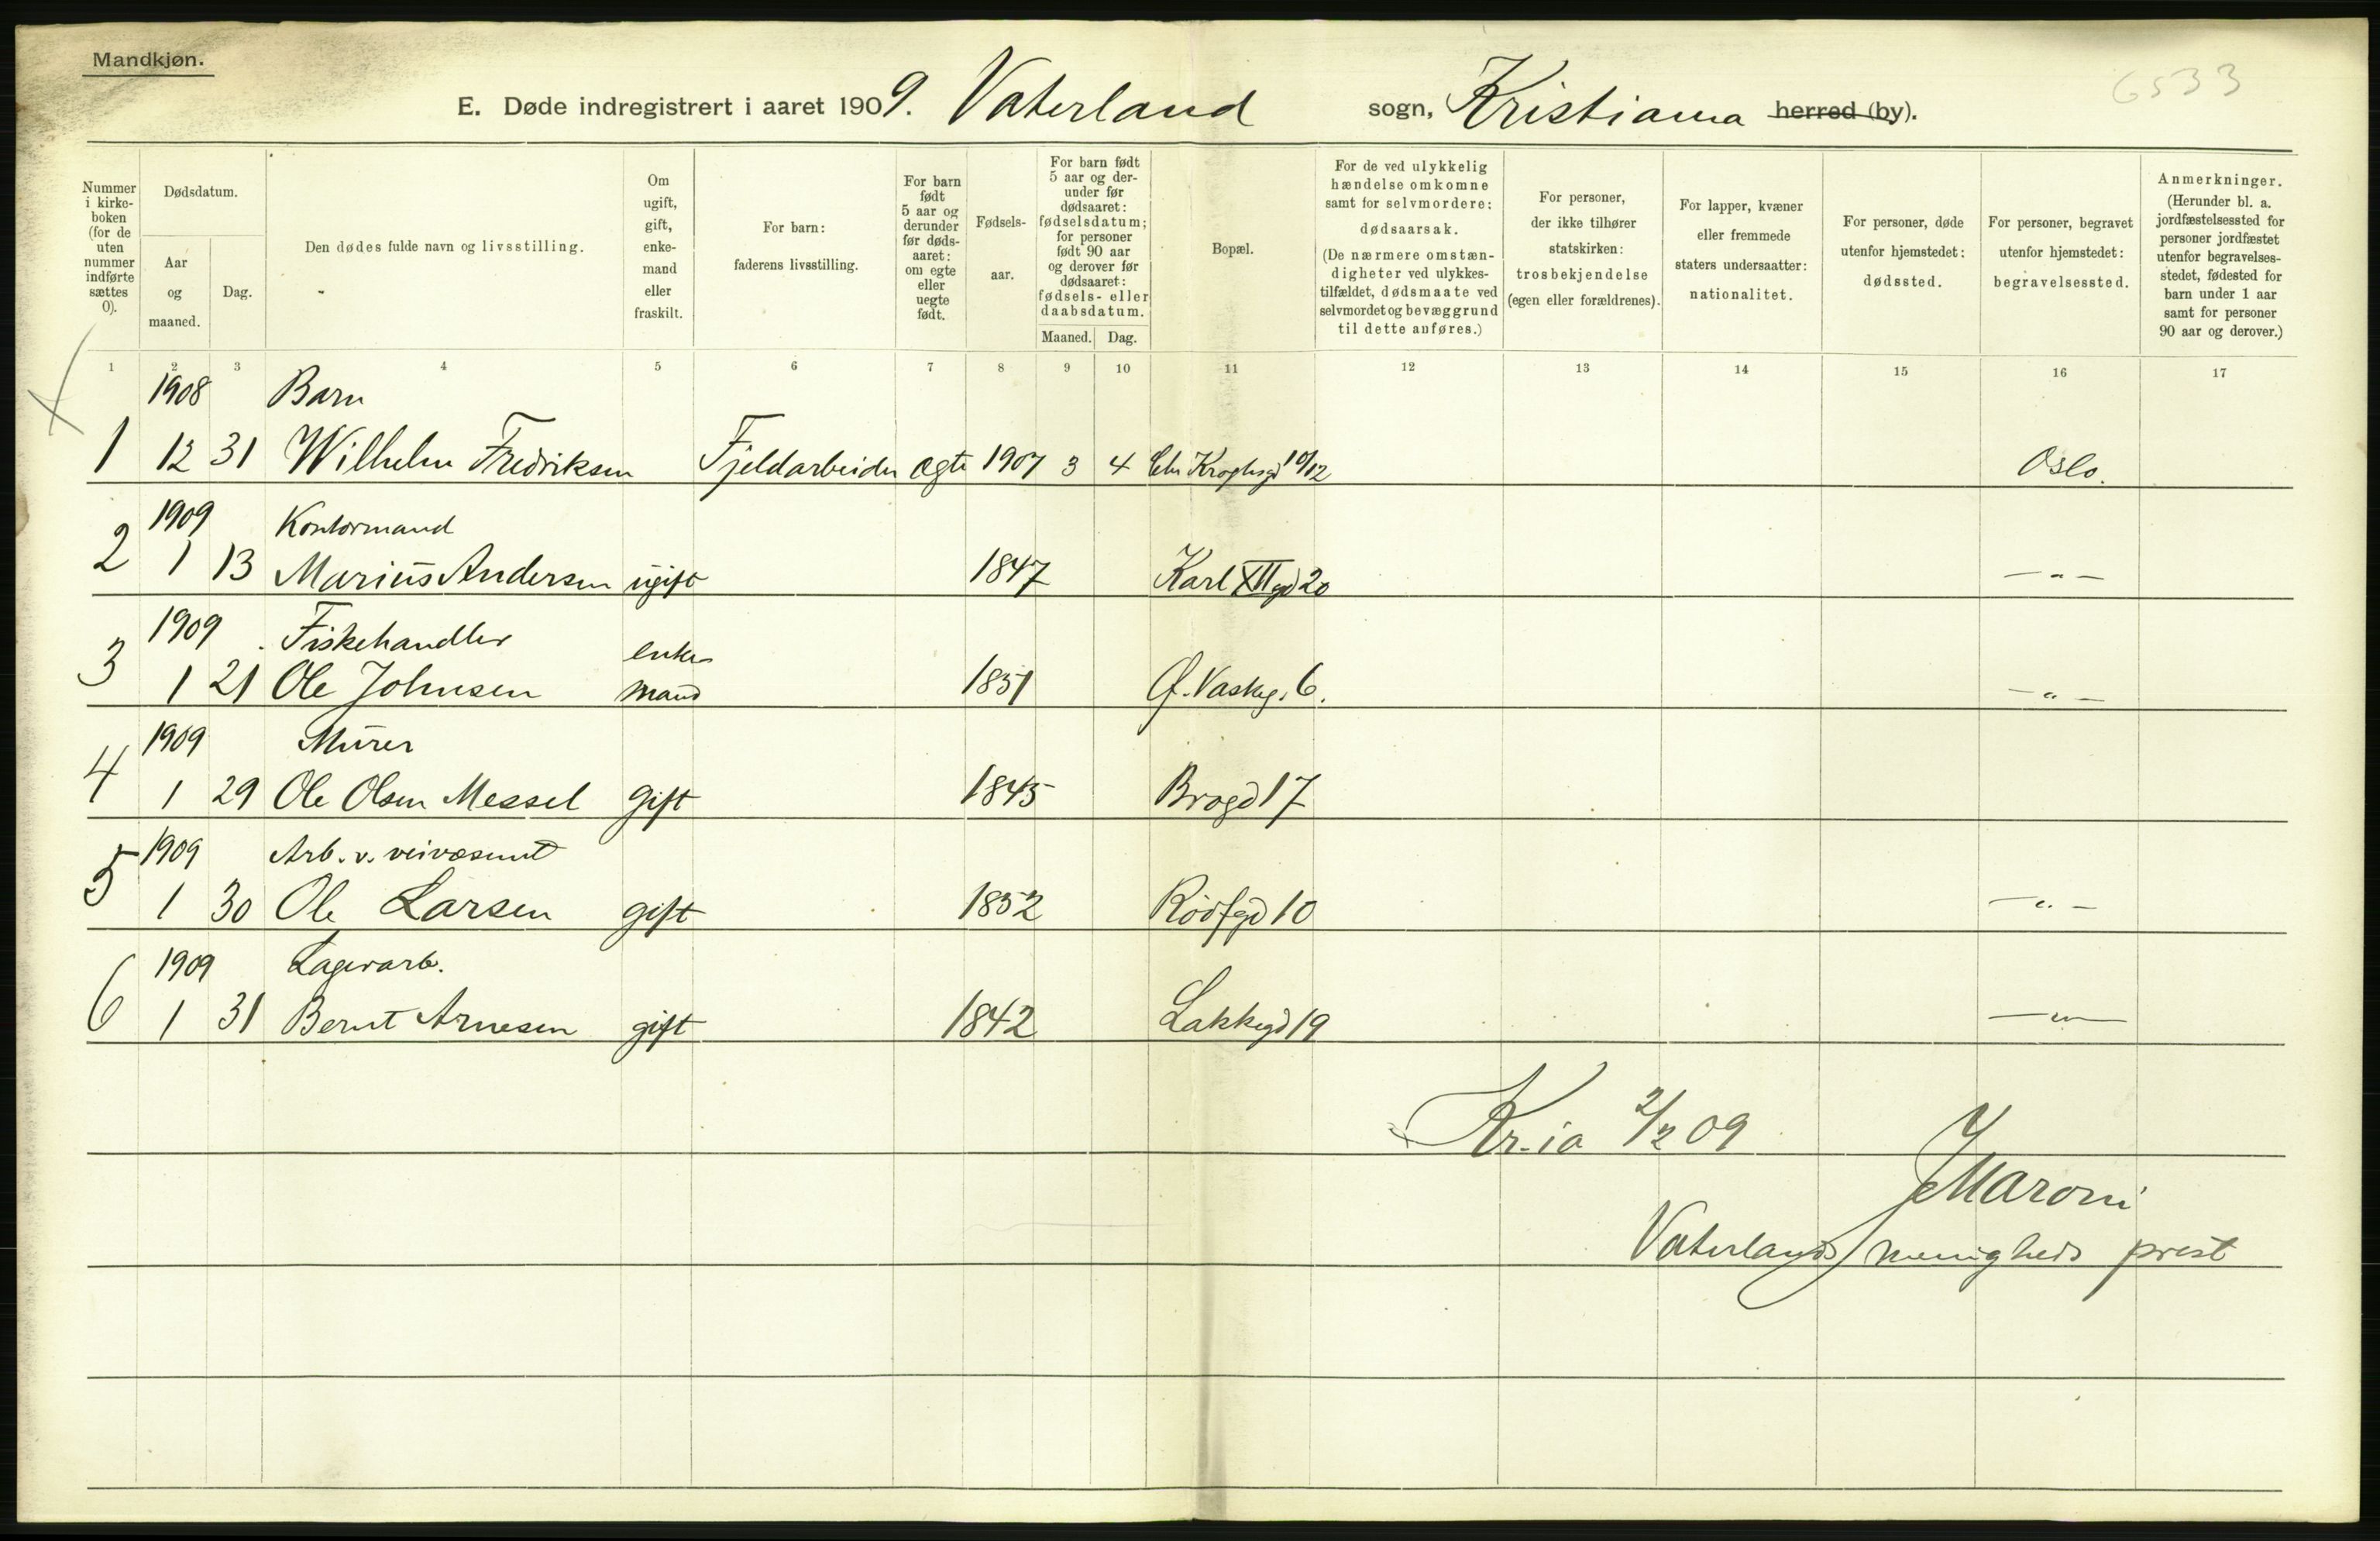 Mandkjøn.
6533
E. Døde indregistrert i aaret 1909. Vaterland sogn, Kristiania herred (by).
Nummer i kirkeboken (for de uten nummer indførte sættes 0).
Dødsdatum.
Aar og maaned.
Dag.
Den dødes fulde navn og livsstilling.
Om ugift, gift, enkemand eller fraskilt.
For barn: faderens livsstilling.
For barn født 5 aar og derunder før dødsaaret: om egte eller uegte født.
Fødselsaar.
For barn født 5 aar og derunder før dødsaaret: fødselsdatum; for personer født 90 aar og derover før dødsaaret: fødsels- eller daabsdatum.
Maaned. Dag.
Bopæl.
For de ved ulykkelig hændelse omkomne samt for selvmordere: dødsaarsak. (De nærmere omstændigheter ved ulykkestilfældet, dødsmaate ved selvmordet og bevæggrund til dette anføres.)
For personer, der ikke tilhører statskirken: trosbekjendelse (egen eller forældrenes).
For lapper, kvæner eller fremmede staters undersaatter: nationalitet.
For personer, døde utenfor hjemstedet: dødssted.
For personer, begravet utenfor hjemstedet: begravelsessted.
Anmerkninger. (Herunder bl. a. jordfæstelsessted for personer jordfæstet utenfor begravelsesstedet, fødested for barn under 1 aar samt for personer 90 aar og derover.)
1 2 3 4 5 6 7 8 9 10 11 12 13 14 15 16 17
1908 Barn
1 12 31 Wilhelm Fredriksen Fjeldarbeider ægte 1907 3 4 Chr Kroghsgd 10/12 Oslo.
1909 Kontormand
2 1 13 Marius Andersen ugift 1847 Karl XII gd 20 — " —
1909 Fiskehandler enke
3 1 21 Ole Johnsen mand 1851 Ø. Vaskeg. 6. — " —
1909 Murer
4 1 29 Ole Olsen Messel gift 1845 Brogd 17
1909 Arb. v. veivæsenet
5 1 30 Ole Larsen gift 1852 Rödfgd 10 — " —
1909 Lagerarb.
6 1 31 Bernt Arnesen gift 1842 Lakkegd 19 — " —
Kr-ia 2/2 09
J Maroni
Vaterlands menigheds prest